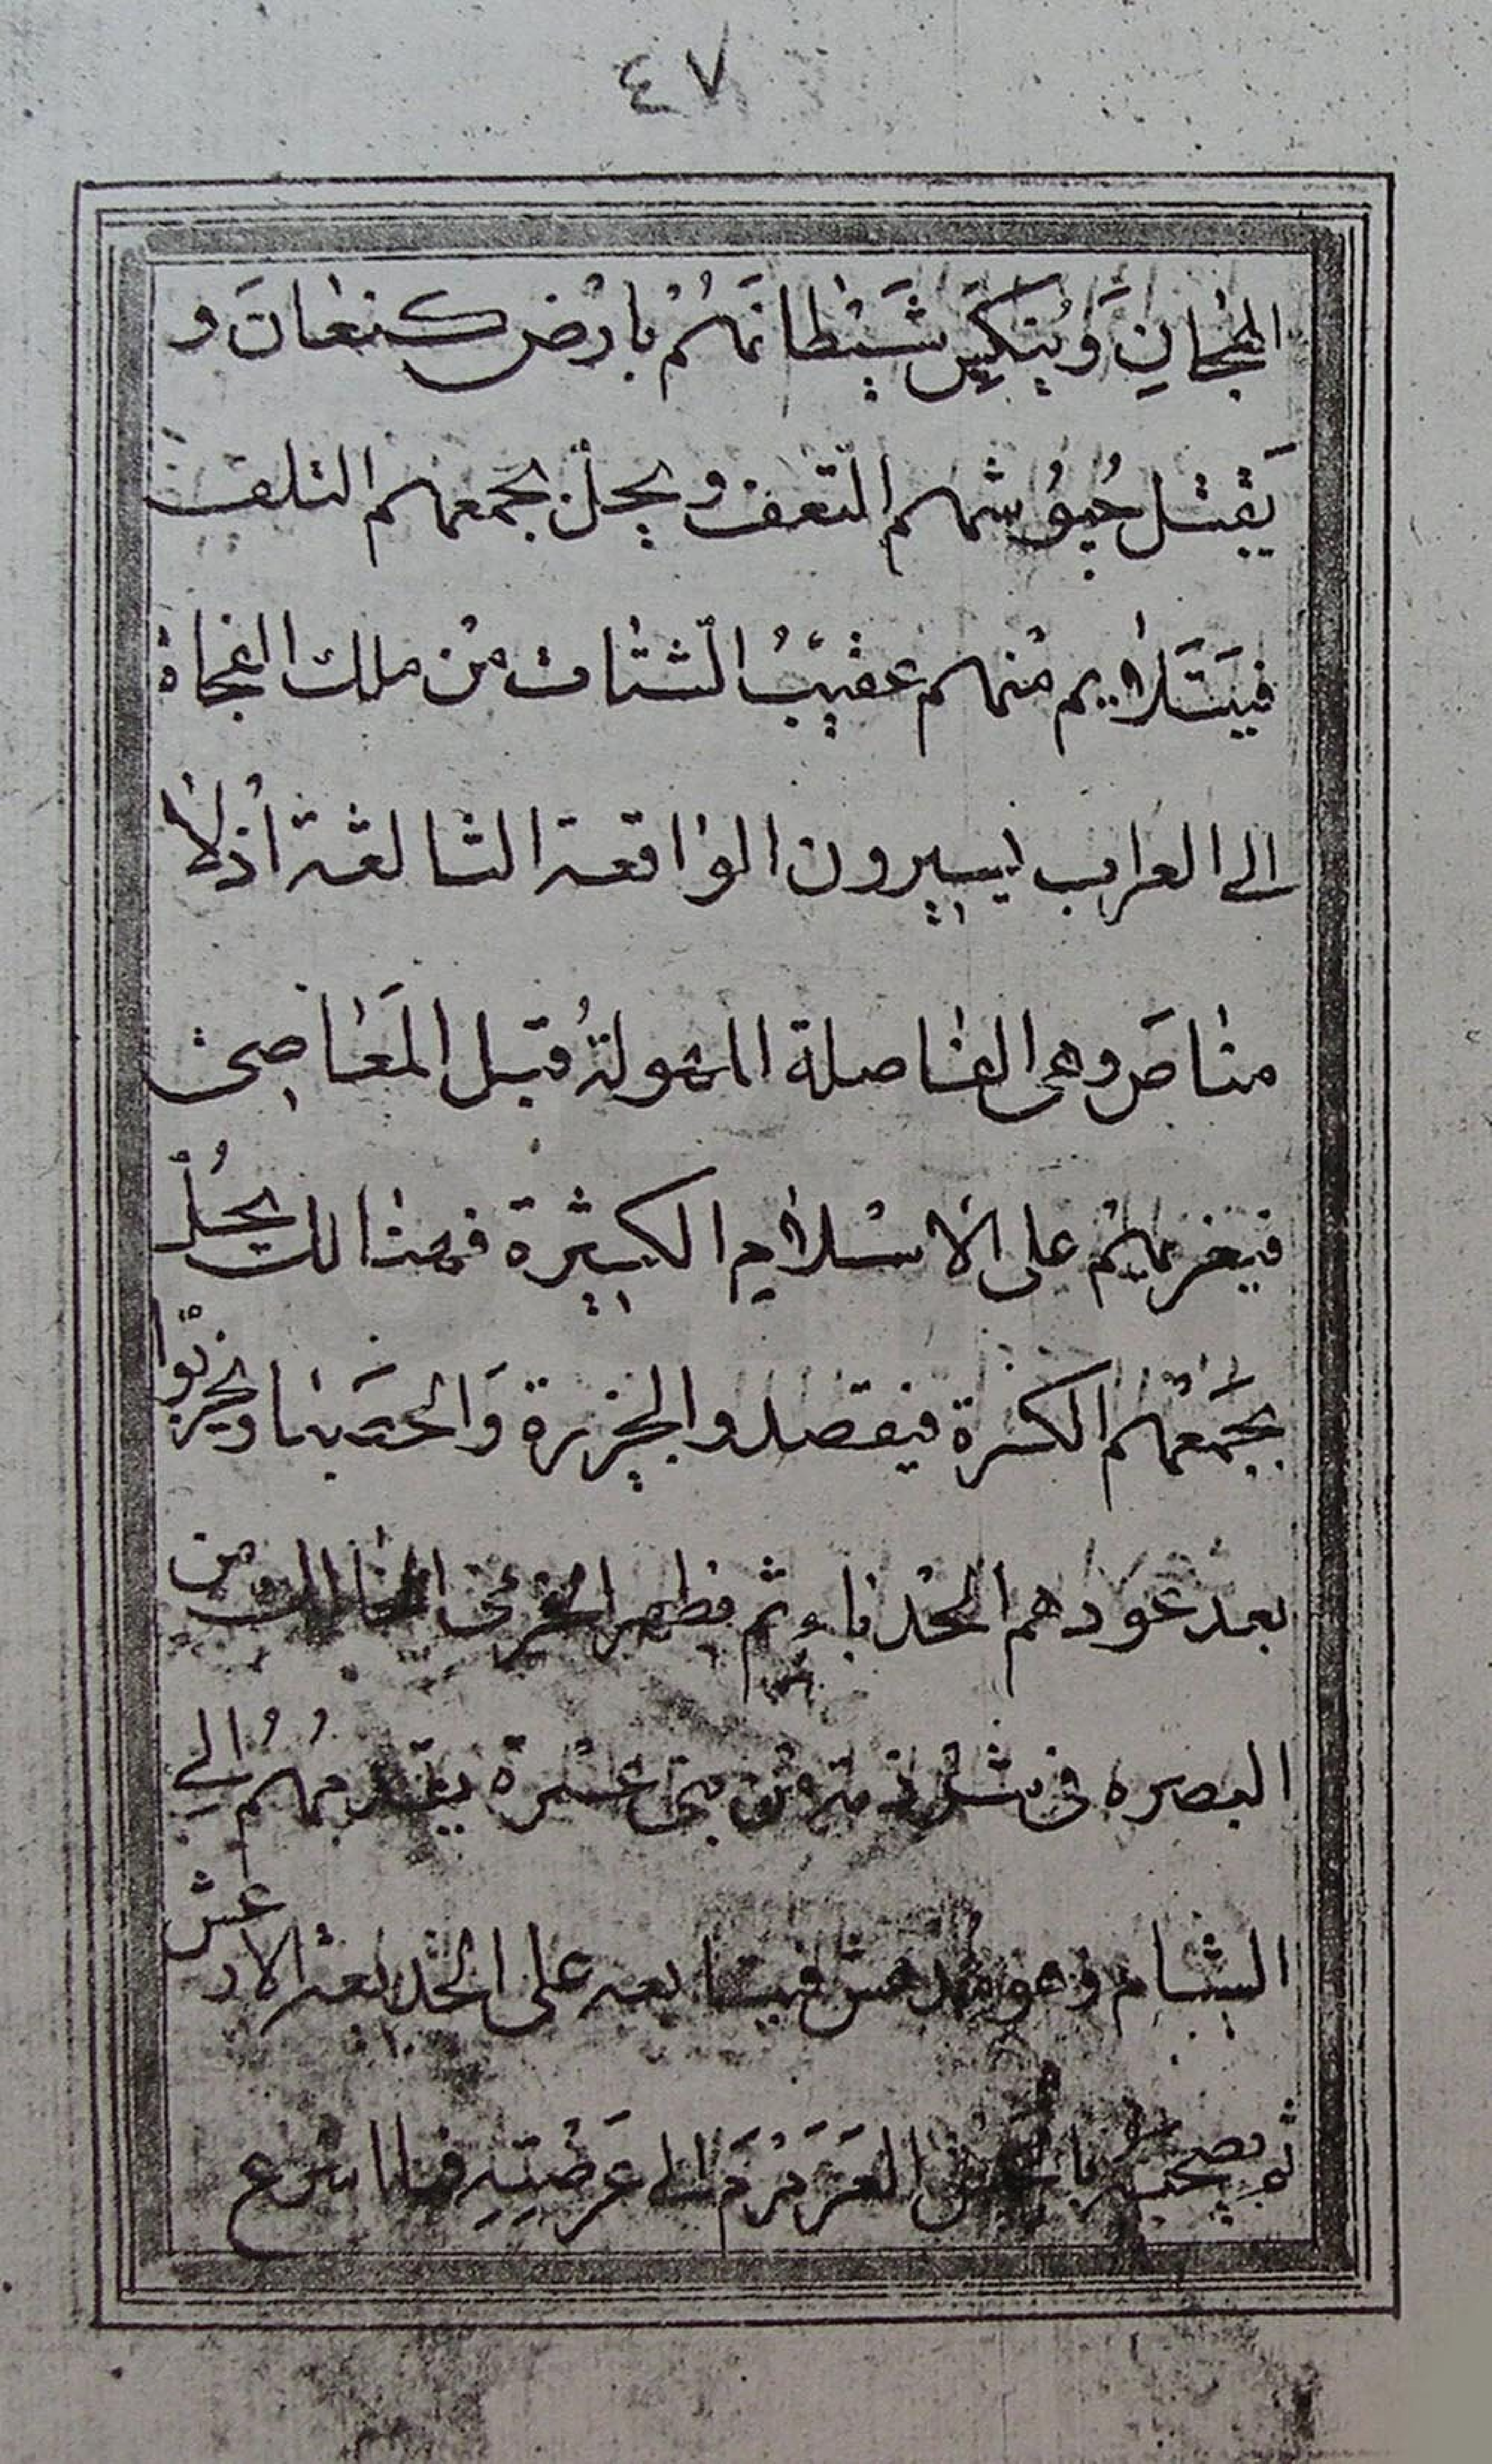 ٤٧
الهجانِ وَيُنكِسُ شَيْطانَهُمْ بارْضِ كنعانَ و
يَقتل جُيُوشهم التعف ويحل بجمعهم التلف
فيتلايم منهم عقيبُ الشتات من ملك النجاة
الى العراب ايسيرون الواقعة الثالثة اذلا
مناصَ وهي الفاصلة المهولةُ قبل المَعاصى
فيغزيهم على الاسلام الكبيرة فهنالك يحُلّ
بجَمعهم الكسرة فيقصدوا الجزيرة وَالحصبا ويخربوا
بعد عودهم الحدباء ثم فظهر من
البصره فى شرذمة من بنى عشرة يقدمهُم الى
الشام وهو مدهش فيتابعه على الخديعة الارعش
ثم يصحبه العَرَمْرَم الى عَرَضتِهِ فما اسرع